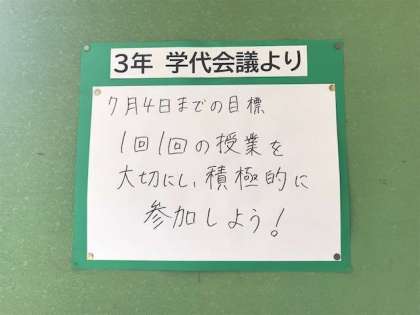 3年 学代会議より
7月4日までの目標
1回1回の授業を
大切にし、積極的に
参加しよう!